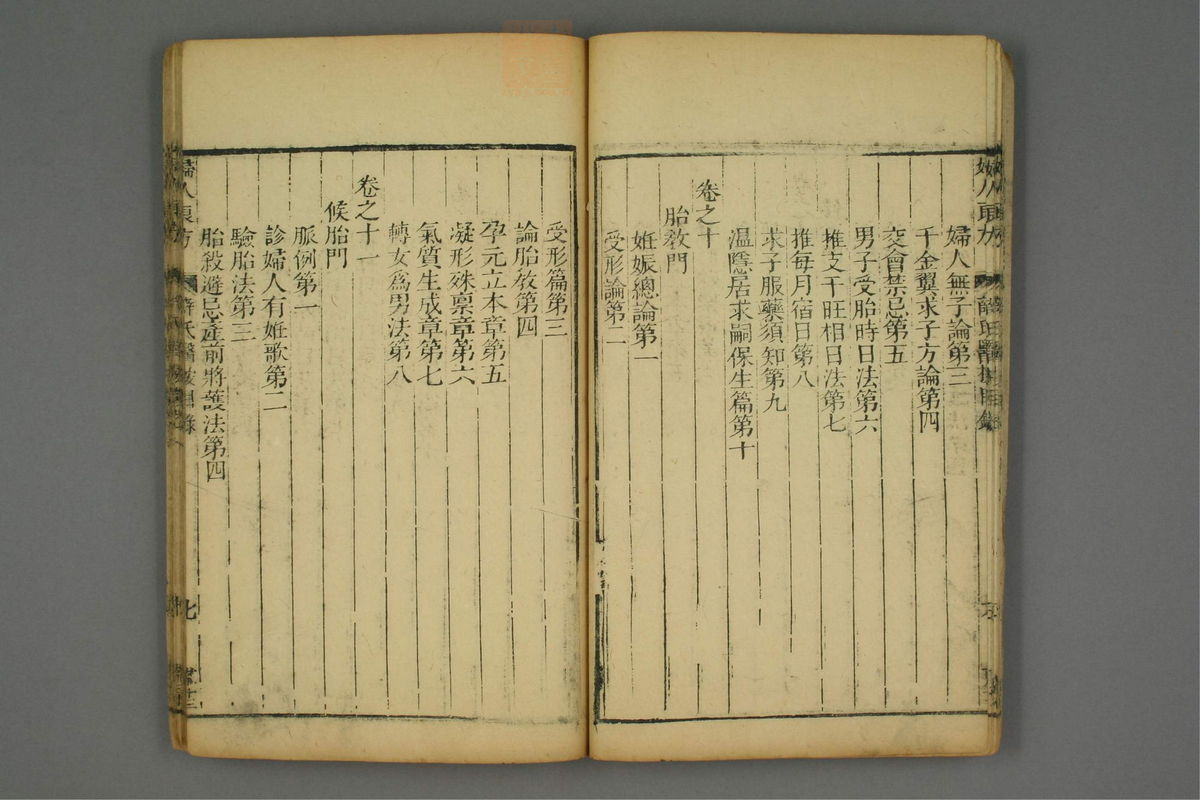 婦人無子論第三
千金翼求子方論第四
交會禁忌第五
男子受胎時日法第六
推支干旺相日法第七
推每月宿日第八
求子服藥須知第九
温隱居求嗣保生篇第十
卷之十
胎教門
姙娠總論第一
受形論第二
受形篇第三
論胎教第四
孕元立本章第五
凝形殊禀章第六
氣質生成章第七
轉女爲男法第八
卷之十一
候胎門
脈例第一
診婦人有姙歌第二
驗胎法第三
胎殺避忌產前將護法第四
婦人良方
七